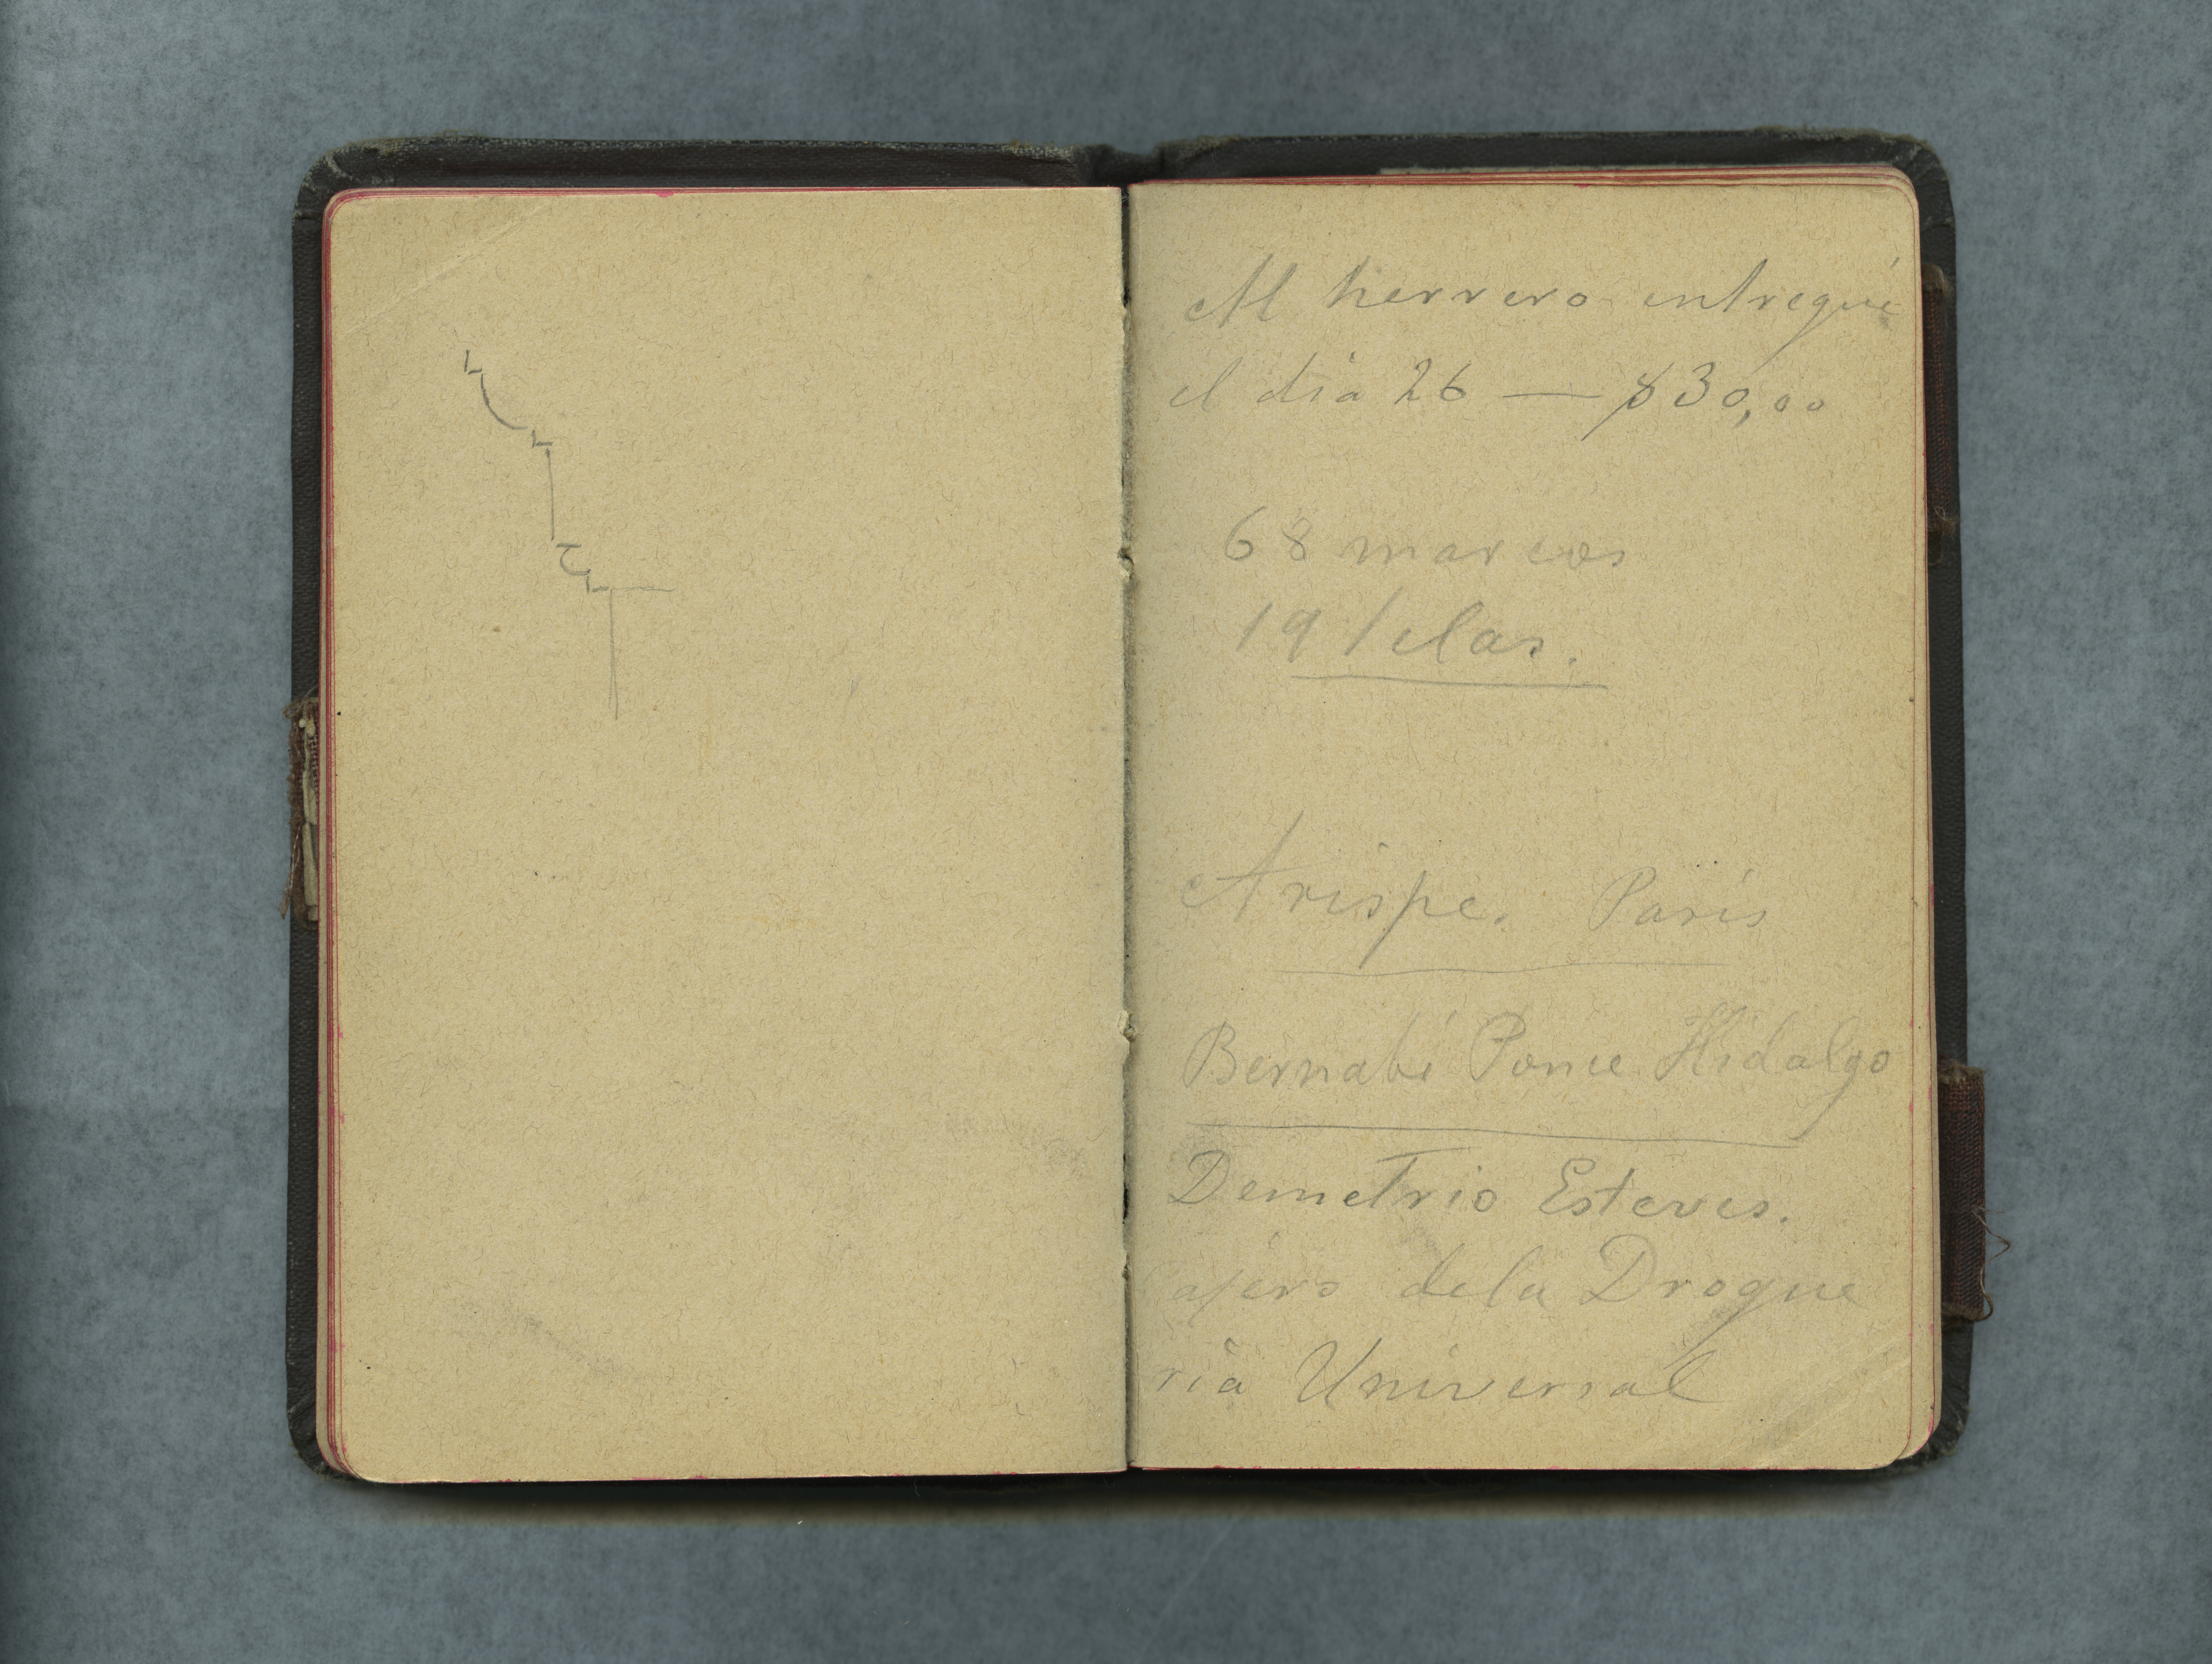 Al herrero entregué
el dia 26 — $30,00
68 marcos
19 telas.
Arispe. Paris
Bernabé Ponce Hidalgo
Demetrio Esteves.
Cajero dela Drogue
ria Universal